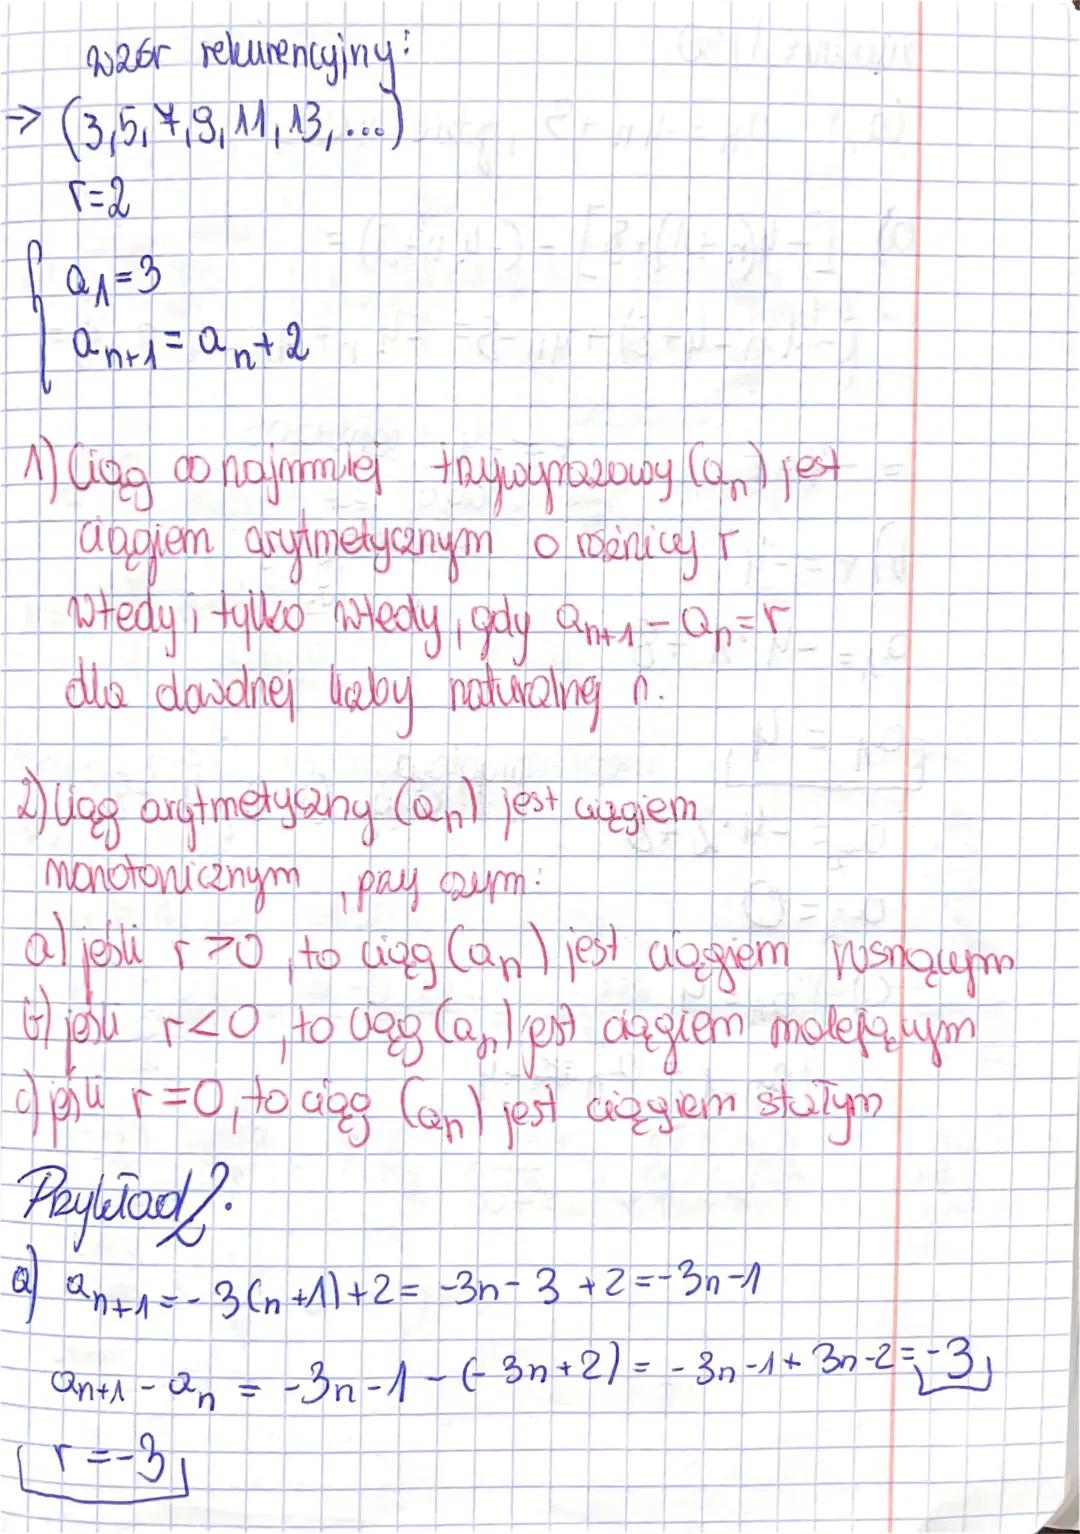 wzór rekurencyjny:
→ (3,5,7,9,11,13,...)
r=2
a₁=3
aₙ₊₁=aₙ+2
1) Ciąg co najmniej trzywyrazowy (aₙ) jest
ciągiem arytmetycznym o różnicy r
wtedy i tylko wtedy, gdy aₙ₊₁-aₙ=r
dla dowolnej liczby naturalnej n.
2) Ciąg arytmetyczny (aₙ) jest ciągiem
monotonicznym, przy czym:
a) jeśli r>0, to ciąg (aₙ) jest ciągiem rosnącym
b) jeśli r<0, to ciąg (aₙ) jest ciągiem malejącym
c) jeśli r=0, to ciąg (aₙ) jest ciągiem stałym
Przykład 2.
a) aₙ₊₁=-3(n+1)+2=-3n-3+2=-3n-1
aₙ₊₁-aₙ=-3n-1-(-3n+2)=-3n-1+3n-2=-3
r=-3